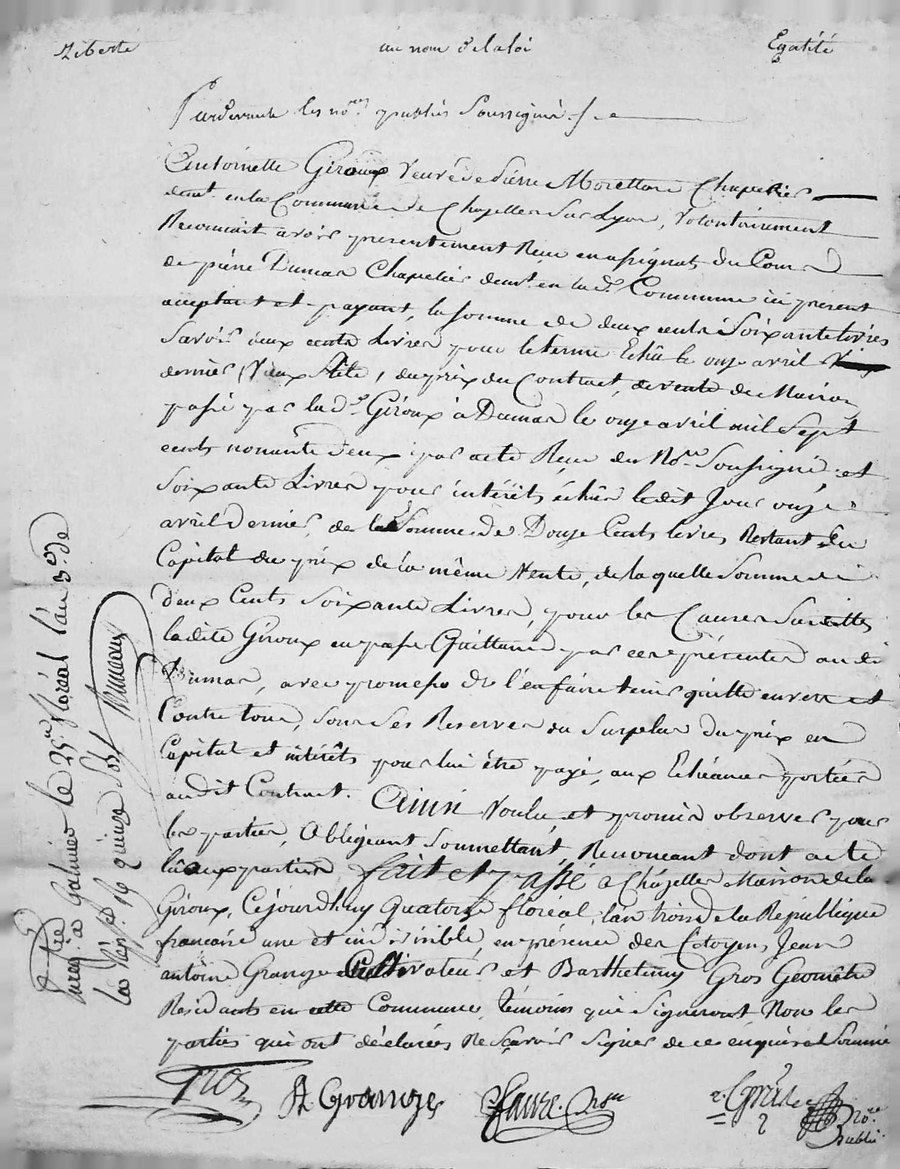 Liberté au nom de la loi Egalité
Pardevant les no.res publics Soussignés
Antoinette Giroux veuve de Pierre Moretton Chapelier
demt. en la Commune de Chazelles Sur Lyon, volontairement
Reconnait avoir presentement Reçu en assignats du Citoyen
de pierre Dumas Chapelier demt. en lad. Commune ici présent
acceptant et payant, la somme de deux cents Soixante livres
Savoir deux cents Livres pour le terme Echû le onze avril
dernier (Vieux Stile) du prix du Contract de vente de Maison
passé par lad. Giroux à Dumas le onze avril mil Sept
cents nonante deux par acte Reçu du No.re Soussigné et
Soixante Livres pour intérêts échûs ledit Jour onze
avril dernier, de la Somme de Douze Cents livres Restant du
Capital du prix de la même Vente, de laquelle Somme de
deux Cents Soixante Livres, pour les Causes Susdittes
ladite Giroux en passe Quittance par ces présentes audit
Dumas, avec promesse de l'en faire tenir quitte envers et
Contre tous, sous ses Reserves du Surplus du prix en
Capital et intérêts pour lui être payé, aux Echéances portées
audit Contract. Ainsi voulu et promis observer par
les parties, Obligeant Soumettant, Renonçant dont acte
aux parties, fait et passé à Chazelles Maison de la
Giroux, Cejourdhuy Quatorze floréal, l'an trois de la République
francaise une et indivisible, en présence des Citoyens Jean
antoine Grange Cultivateur et Barthelemy Gros Geomètre
Residants en cette Commune, témoins qui Signeront Non les
parties qui ont déclarées ne Sçavoir Signer de ce enquises et Sommé
Gros A Grange no.re
Public
à Galmier le 25 floréal l'an 3e. de
quinze sols